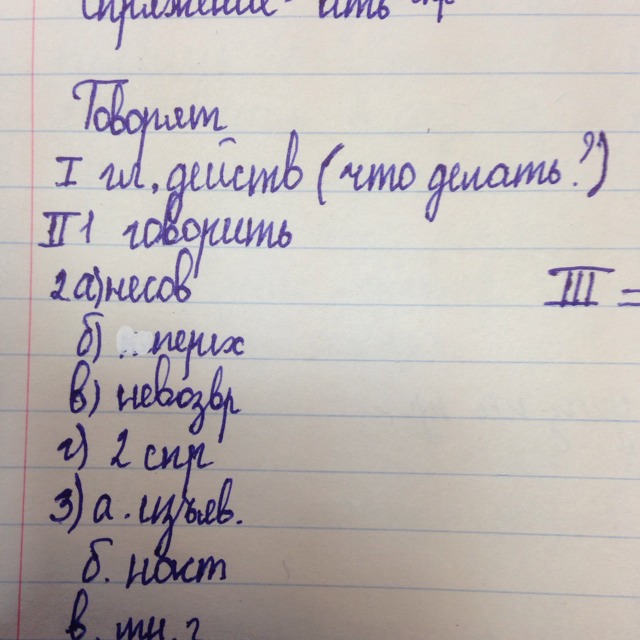 спряжение - ить
Говорят
I гл, действ (что делать?)
II 1 говорить
2а) несов
III =
б) перех
в) невозвр
г) 2 спр
3) а. изъяв.
б. наст
в. мн. ч